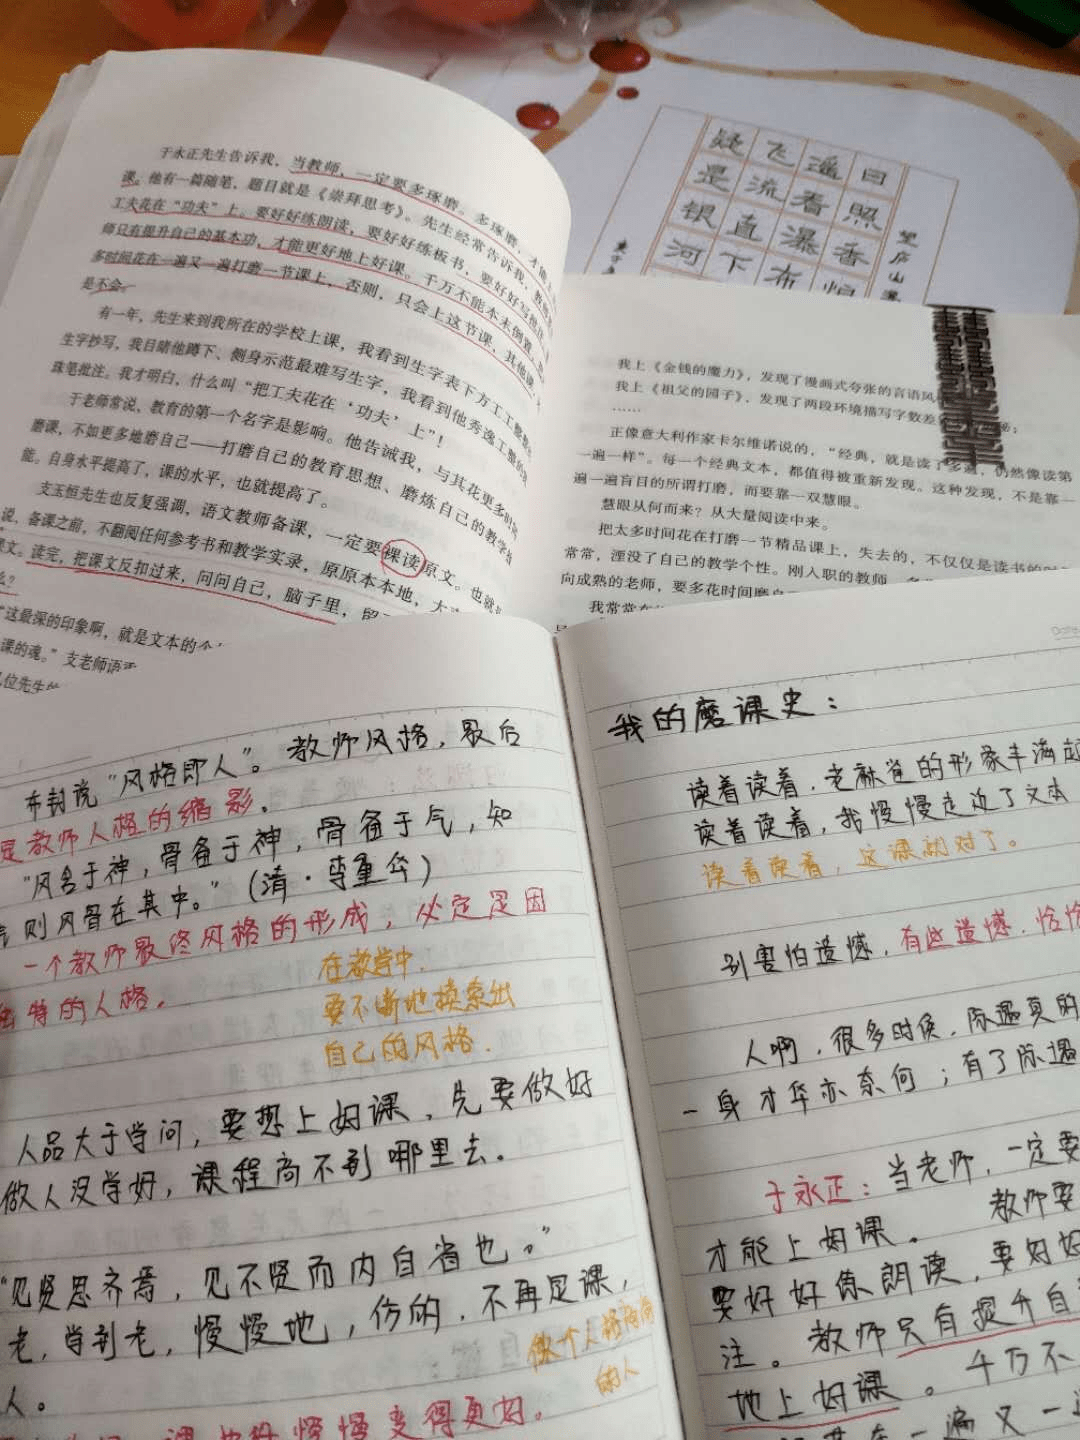 于永正先生告诉我，当教师，一定要多琢磨。多琢磨，才能上
课。他有一篇随笔，题目就是《崇拜思考》。先生经常告诉我，教
工夫花在“功夫”上。要好好练朗读，要好好练板书，要好好写
师只有提升自己的基本功，才能更好地上好课。千万不能本末倒置，
多时间花在一遍又一遍打磨一节课上，否则，只会上这节课，其他课
是不会。
有一年，先生来到我所在的学校上课，我看到生字表下方工工整整
生字抄写，我目睹他蹲下、侧身示范最难写生字，我看到他秀逸工整的
珠笔批注。我才明白，什么叫“把工夫花在‘功夫’上”！
于老师常说，教育的第一个名字是影响。他告诫我，与其花更多时间
磨课，不如更多地磨自己——打磨自己的教育思想、磨炼自己的教学
能。自身水平提高了，课的水平，也就提高了。
支玉恒先生也反复强调，语文教师备课，一定要裸读原文。也就是
说，备课之前，不翻阅任何参考书和教学实录，原原本本地，大
课文。读完，把课文反扣过来，问问自己，脑子里，留
么？
“这最深的印象啊，就是文本的个
课的魂。”支老师语
几位先生的
疑飞遥日
是流看照
银直瀑香
河下布烟
望庐山瀑
我上《金钱的魔力》，发现了漫画式夸张的言语风
我上《祖父的园子》，发现了两段环境描写字数差
……
正像意大利作家卡尔维诺说的，“经典，就是读了多遍，仍然像读第
一遍一样”。每一个经典文本，都值得被重新发现。这种发现，不是靠一
遍一遍盲目的所谓打磨，而要靠一双慧眼。
慧眼从何而来？从大量阅读中来。
把太多时间花在打磨一节精品课上，失去的，不仅仅是读书的时
常常，湮没了自己的教学个性。刚入职的教师
向成熟的老师，要多花时间磨自
我常常在
布封说“风格即人”。教师风格，最后
是教师人格的缩影。
“风含于神，骨备于神，骨备于气，知
则风骨在其中。”（清·李重华）
一个教师最终风格的形成，必定是因
独特的人格。
在教学中，
要不断地摸索出
自己的风格．
人品大于学问，要想上好课，先要做好
做人没学好，课程高不到哪里去。
“见贤思齐焉，见不贤而内自省也。”
老，学到老，慢慢地，你的，不再是课，
人。
做个人格高尚
的人
课也好慢慢变得更好。
我的磨课史：
读着读着，老麻雀的形象丰满起
读着读着，我慢慢走近了文本
读着读着，这课就对了。
别害怕遗憾，有些遗憾，恰恰
人啊，很多时候，际遇真的
一身才华亦奈何；有了际遇
于永正：当老师，一定要
才能上好课。教师要
要好好练朗读，要好好
注。教师只有提升自
地上好课。千万不
一遍又一